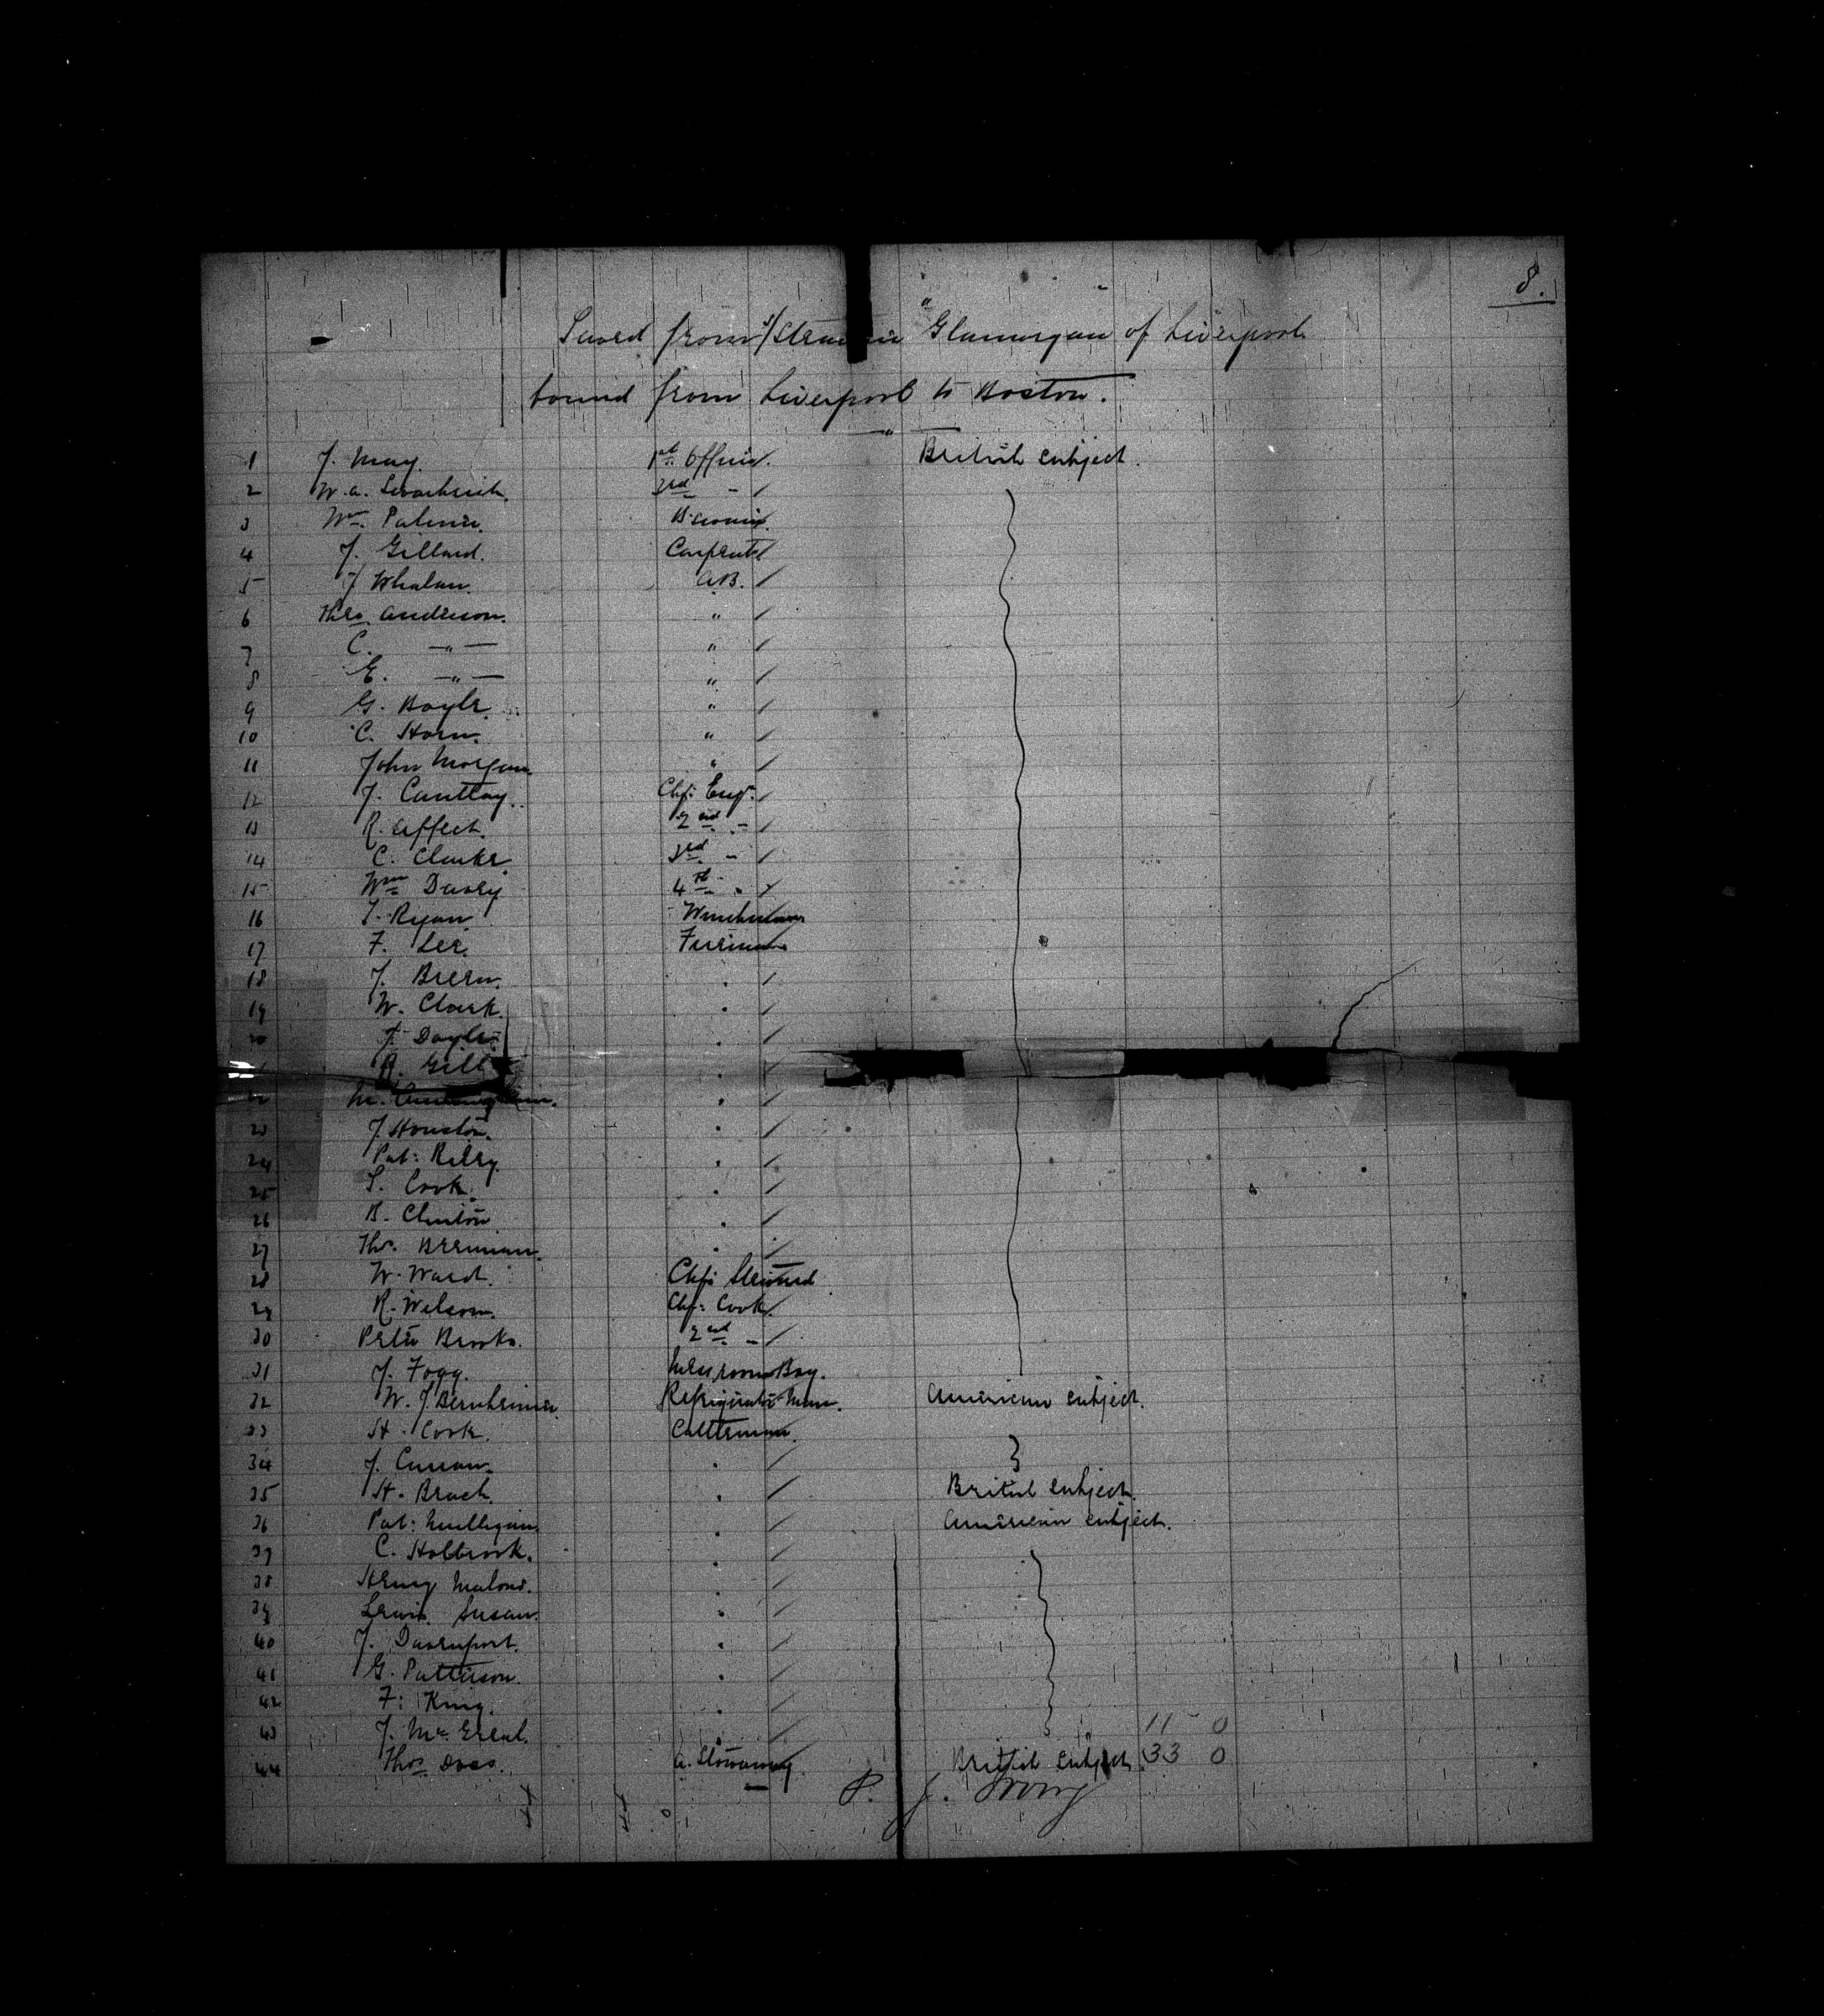 8.
Saved from s/Steamer "Glamorgan of Liverpool
bound from Liverpool to Boston.
1 J. May. 1st Officer. British subject.
2 W. A. 3rd "
3 Wm. Palmer.
4 J. Gillard. Carpenter
5 J Whalan. A.B.
6 Theo. Anderson. "
7 C. —"— "
8 E. —"— "
9 G. Boyle. "
10 C. Horn. "
11 John Morgan "
12 J. Cantlay. Chf: Eng.
13 R. Affleck. 2nd "
14 C. Clarke 3rd "
15 Wm Davey 4th "
16 J. Ryan Winchman
17 F. Lee. Fireman
18 J. Breen. "
19 W. Clark. "
20 J. Doyle. "
R. Gill "
22 M. Cunningham. "
23 J. Houston. "
24 Pat: Reley. "
25 S. Cook. "
26 B. Clinton "
27 Thos. Brennan. "
28 W. Ward. Chf: Steward
29 R. Wilson. Chf: Cook.
30 Peter Brooks. 2nd "
31 J. Fogg. Messroom Boy.
32 W. J. Bernheimer. Refrigerator Man. American subject.
33 H. Cook. Cattleman.
34 J. Curran. "
35 H. Brach. " British subject.
36 Pat: Mulligan. " American subject.
37 C. Holbrook. "
38 Henry Malone. "
39 Lewis Susan. "
40 J. Davenport. "
41 G. Patterson. "
42 F: King. "
43 J. Mc " 11 0
44 Thos. A. Stowaway British subject 33 0
P. J.